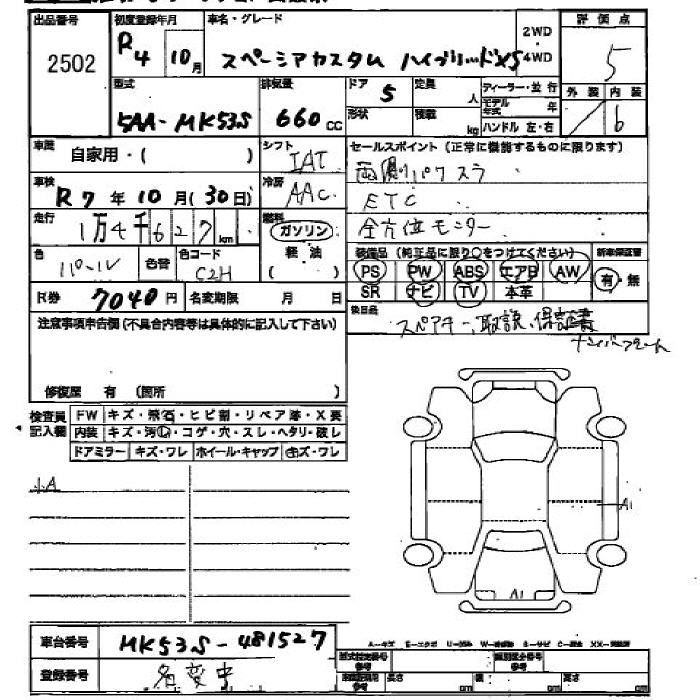 出品番号 初度登録年月 車名・グレード 評価点
2502 R4 10月 スペーシアカスタム ハイブリッドXS 2WD 4WD 5
型式 排気量 ドア 5 定員 人 ディーラー・並行 外装 内装
5AA-MK53S 660cc 形状 積載 kg モデル年式 年 ハンドル 左・右 6
車歴 自家用・( ) シフト IAT セールスポイント(正常に機能するものに限ります)
車検 R7年10月(30日) 冷房 AAC 両側パワスラ
ETC
走行 1万4千627km 燃料 ガソリン 軽油 全方位モニター
色 パール 色替 色コード C2H 装備品(純正品に限り○をつけてください) 新車保証書
PS PW ABS エアB AW 有・無
SR ナビ TV 本革
R券 7040円 名変期限 月 日 後日品
スペアキー、取説、保証書
ナンバープレート
注意事項申告欄(不具合内容等は具体的に記入して下さい)
修復歴 有 (箇所 )
検査員記入欄 FW キズ・飛石・ヒビ割・リペア跡・X要
内装 キズ・汚レ・コゲ・穴・スレ・ヘタリ・破レ
ドアミラー キズ・ワレ ホイール・キャップ キズ・ワレ
小A
A1
A1
車台番号 MK53S-481527
登録番号 名変中
A-キズ E-エクボ
型式指定番号 参考 類別区分番号 参考
長さ cm 幅 cm 高さ cm